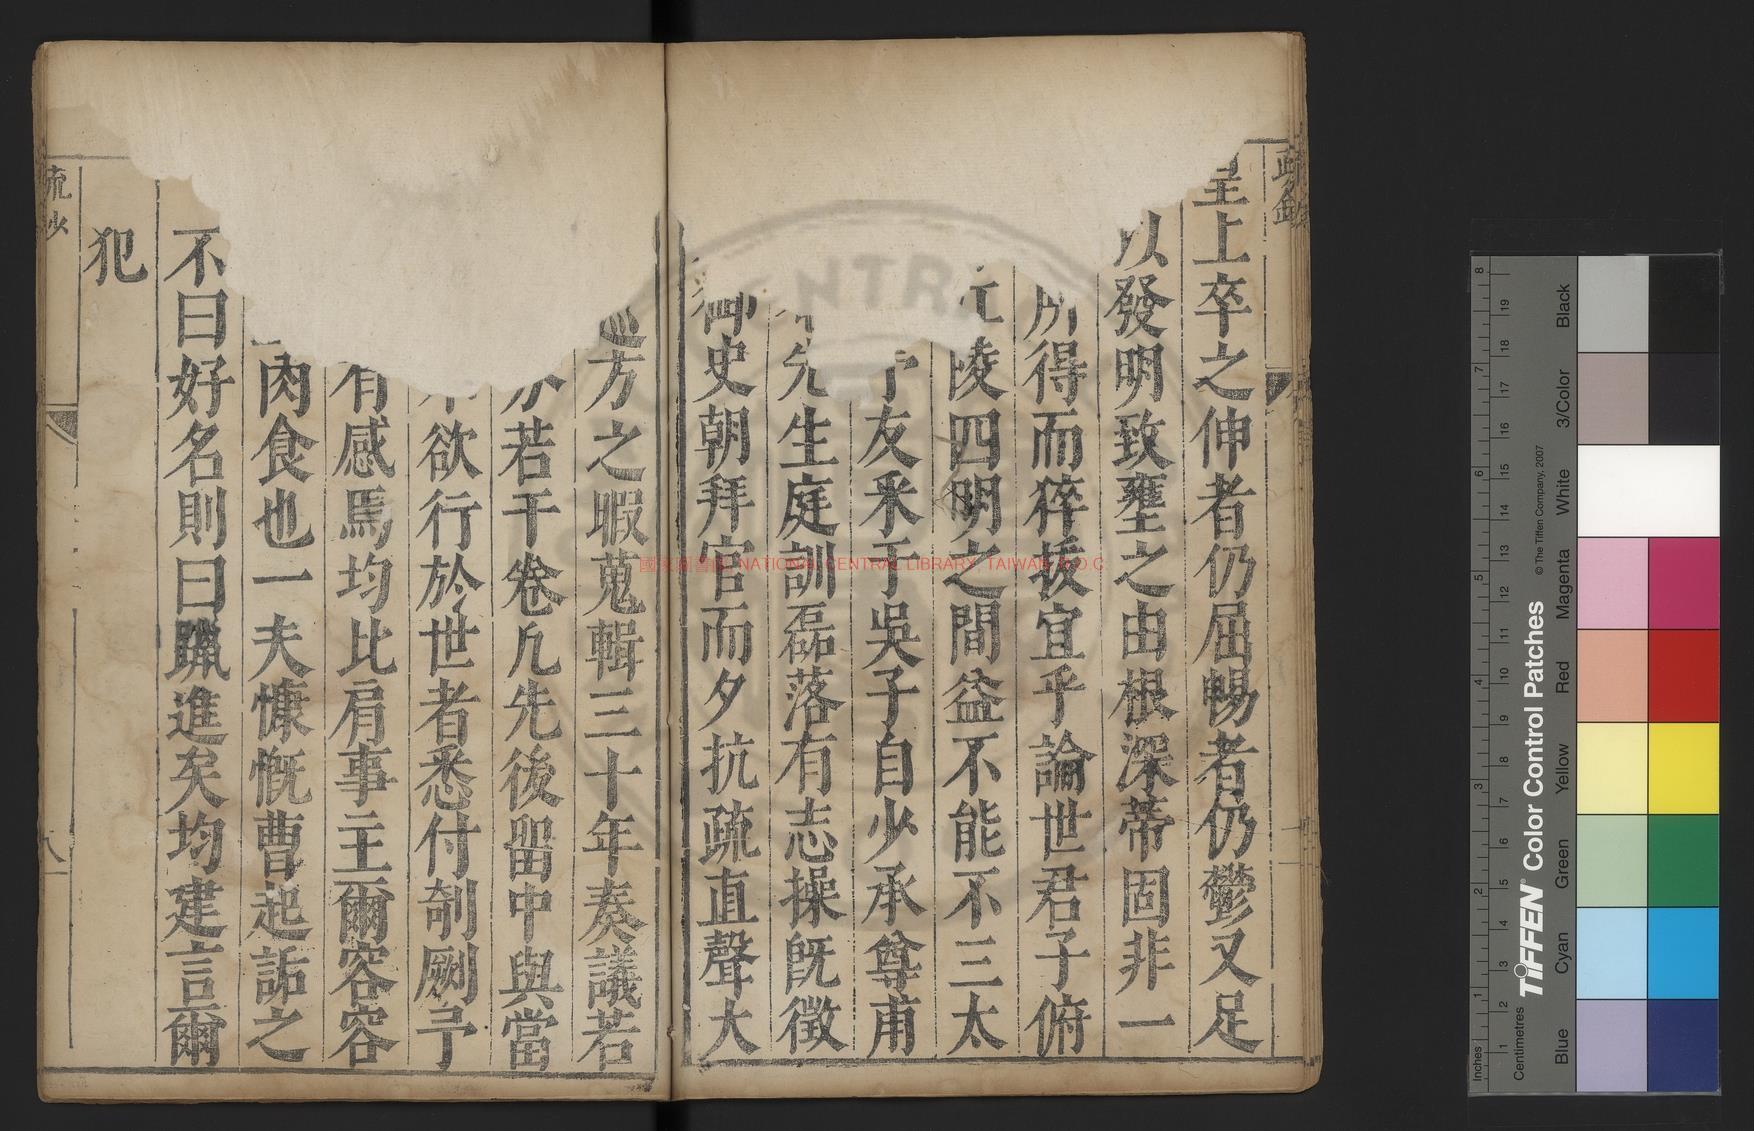 上卒之伸者仍屈暢者仍鬱又足
以發明致壅之由根深蒂固非一
所得而猝拔宜乎論世君子俯
陵四明之間益不能不三太
友釆于吳子自少承尊甫
先生庭訓磊落有志操旣徵
御史朝拜官而夕抗疏直聲大
巡方之暇蒐輯三十年奏議若
若干卷凡先後留中與當
欲行於世者悉付剞劂予
有感焉均比肩事主爾容容
肉食也一夫慷慨曹起詬之
不曰好名則曰躐進矣均建言爾
犯
國家圖書館 NATIONAL CENTRAL LIBRARY, TAIWAN, R.O.C
TIFFEN Color Control Patches
© The Tiffen Company, 2007
Centimetres
Inches
Blue
Cyan
Green
Yellow
Red
Magenta
White
3/Color
Black